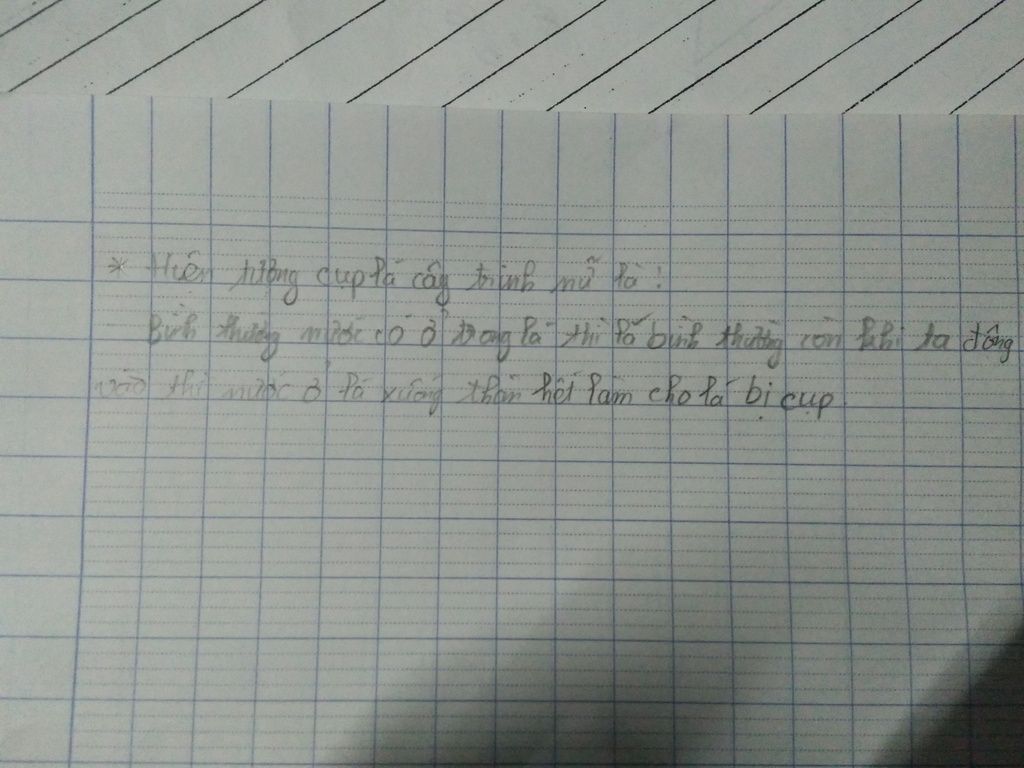 * Hiện tượng cụp lá cây trinh nữ là:
Bình thường nước có ở trong lá thì lá bình thường còn khi ta động
vào thì nước ở lá xuống thân hết làm cho lá bị cụp